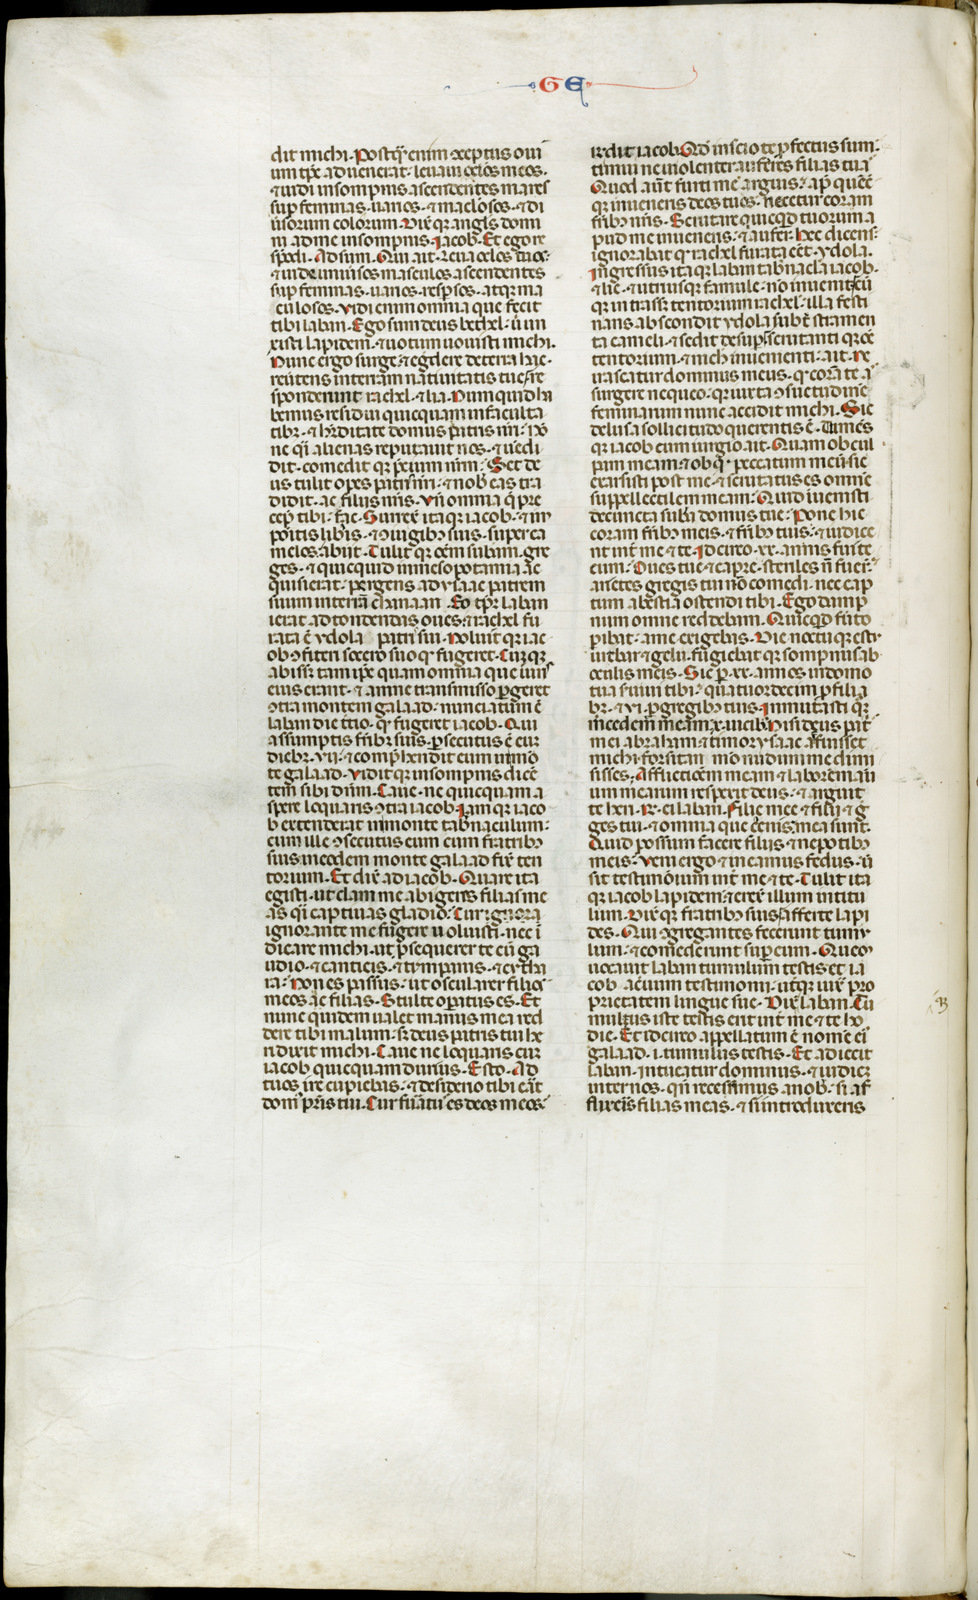 GE
dit michi. Postq̃ enim ɔceptus oui
um tp̃c aduenerat. leuaui oculos meos.
⁊ uidi in sompnis ascendentes mares
sup feminas. uarios. ⁊ maclosos. ⁊ di
u̾sorum colorum. Dix̾ qꝫ angl̃s domi
ni ad me in sompnis. Iacob. Et ego re
spõdi. Adsum. Qui ait. Leua oculos tuos.
⁊ uide uniu̾sos masculos ascendentes
sup feminas. uarios. resp̃sos. atqꝫ ma
culosos. Vidi enim omnia que fecit
tibi laban. Ego sum deus bethel. ubi un
xisti lapidem. ⁊ uotum uouisti michi.
Nunc ergo surge. ⁊ egredere de terra hac.
reu̾tens in terram natiuitatis tue. Re
sponderunt rachel. ⁊ lia. Num quid ha
bemus residui quicquam in faculta
tibꝫ. ⁊ h̾editate domus patris nr̃i. Nõ
ne q̃i alienas reputauit nos. ⁊ uendi
dit. comedit qꝫ p̃cium nr̃m. Set de
us tulit opes patris nr̃i. ⁊ nob̃ eas tra
didit. ac filiis nr̃is. Vñ omnia q̃ pre
cep̃ tibi. fac. Surrex̾ itaqꝫ iacob. ⁊ im
põitis lib̾is. ⁊ ɔiugibꝫ suis. super ca
melos. abiit. Tulit qꝫ oẽm sub̃am. gre
ges. ⁊ quicquid in mesopotamia ac
quisierat. pergens ad ysaac patrem
suum in terrã chanaan. Eo tp̃r laban
ierat ad tondendas oues. ⁊ rachel fu
rata ẽ ydola patris sui. Noluit qꝫ iac
ob ɔfiteri socero suo qꝫ fugeret. Cumqꝫ
abissꝫ tam ip̃e quam omnia que iuris
eius erant. ⁊ amne transmisso pergeret
ɔtra montem galaad. nunciatum ẽ
laban die t̾cio. qꝫ fugeret iacob. Qui
assumptis fr̃ibꝫ suis. p̃secutus ẽ eum
diebꝫ. vii. ⁊ comp̃hendit eum in mõ
te galaad. Vidit qꝫ in sompnis dicẽ
tem sibi dñm. Caue ne quicquam a
spere loquaris ɔtra iacob. Iam qꝫ iaco
b extenderat in monte tab̾naculum.
cum ille ɔsecutus eum cum fratribꝫ
suis in eodem monte galaad fix̾ ten
torium. Et dix̾ ad iacob. Quare ita
egisti. ut clam me abigeres filias me
as q̃i captiuas gladio. Cur ignora
ignorante me fugere uoluisti. nec i
dicare michi. ut p̃sequerer te cũ ga
udio. ⁊ canticis. ⁊ tympanis. ⁊ cytha
ra. Non es passus. ut oscularer filios
meos ac filias. Stulte opatus es. Et
nunc quidem ualet manus mea red
dere tibi malum. sꝫ deus patris tui he
ri dixit michi. Caue ne loquaris cum
iacob quicquam durius. Esto. Ad
tuos ire cupiebas. ⁊ desiderio tibi erãt
dom̾ pr̃is tui. Cur furatus es deos meos.
R̃dit iacob. Qd̾ inscio te p̃fectus sum.
timui ne uiolenter auferres filias tuas.
Quod aũt furti me arguis. ap̃ quẽcũ
qꝫ inueneris deos tuos. necetur coram
fr̃ibꝫ nr̃is. Scrutare quicq̃d tuorum a
pud me inueneris. ⁊ aufer. Hec dicens.
ignorabat qꝫ rachel furata eẽt ydola.
Ingressus itaqꝫ laban tab̾nacla iacob.
⁊ lie. ⁊ utriusqꝫ famule. nõ inuenit. Cũ
qꝫ intrassꝫ tentorium rachel. illa festi
nans abscondit ydola subt̾ stramen
ta cameli. ⁊ sedit desup. scrutanti qꝫ oẽ
tentorium. ⁊ nichil inuenienti. ait. Ne
irascatur dominus meus. qꝫ corã te as
surgere nequeo. qꝫ iuxta ɔsuetudinẽ
feminarum nunc accidit michi. Sic
delusa sollicitudo querentis ẽ. Tumẽs
qꝫ iacob cum iurgio ait. Quam ob cul
pam meam. ⁊ ob q̾ peccatum meũ sic
exarsisti post me. ⁊ scrutatus es omnẽ
suppellectilem meam. Quid inuenisti
de cuncta sub̃a domus tue. Pone hic
coram fr̃ibꝫ meis. ⁊ fr̃ibꝫ tuis. ⁊ iudice
nt int̾ me ⁊ te. Idcirco. xx. annis fui te
cum. Oues tue ⁊ capre. steriles ñ fuer̃.
arietes gregis tui nõ comedi. nec cap
tum a bestia ostendi tibi. Ego damp
num omne reddebam. Quicq̃d furto
p̾ibat. a me exigebas. Die noctuqꝫ estu
urebar ⁊ gelu. fugiebat qꝫ sompnus ab
oculis meis. Sic p̾. xx. annos in domo
tua seruiui tibi. quatuordecim p̾ filia
bꝫ. ⁊ vi. p̾ gregibꝫ tuis. Immutasti qꝫ
mercedem meam. x. uicibꝫ. Nisi deus pat̾s
mei abraham. ⁊ timor ysaac affuisset
michi. forsitan modo nudum me dimi
sisses. Afflictiõem meam ⁊ laborem ma
num mearum respexit deus. ⁊ arguit
te heri. R̃. ei laban. Filie mee ⁊ filii ⁊ g̾
ges tui. ⁊ omnia que cernis. mea sunt.
Quid possum facere filiis. ⁊ nepotibꝫ
meis. Veni ergo ⁊ ineamus fedus. ut
sit testimonium int̾ me ⁊ te. Tulit ita
qꝫ iacob lapidem. ⁊ erex̾ illum in titu
lum. Dix̾ qꝫ fratribꝫ suis. afferte lapi
des. Qui ɔgregantes fecerunt tumu
lum. ⁊ comederunt sup eum. Quem
uocauit laban tumulum testis et ia
cob aceruum testimonii. ut̾qꝫ iux̾ pro
prietatem lingue sue. Dix̾ laban. Tu
mulus iste testis erit int̾ me ⁊ te ho
die. Et idcirco appellatum ẽ nomẽ eiꝰ
galaad. .i. tumulus testis. Et adiecit
laban. Intueatur dominus. ⁊ iudicet
inter nos. qñ recesserimus a nob̃. si af
flixeris filias meas. ⁊ si introduxeris